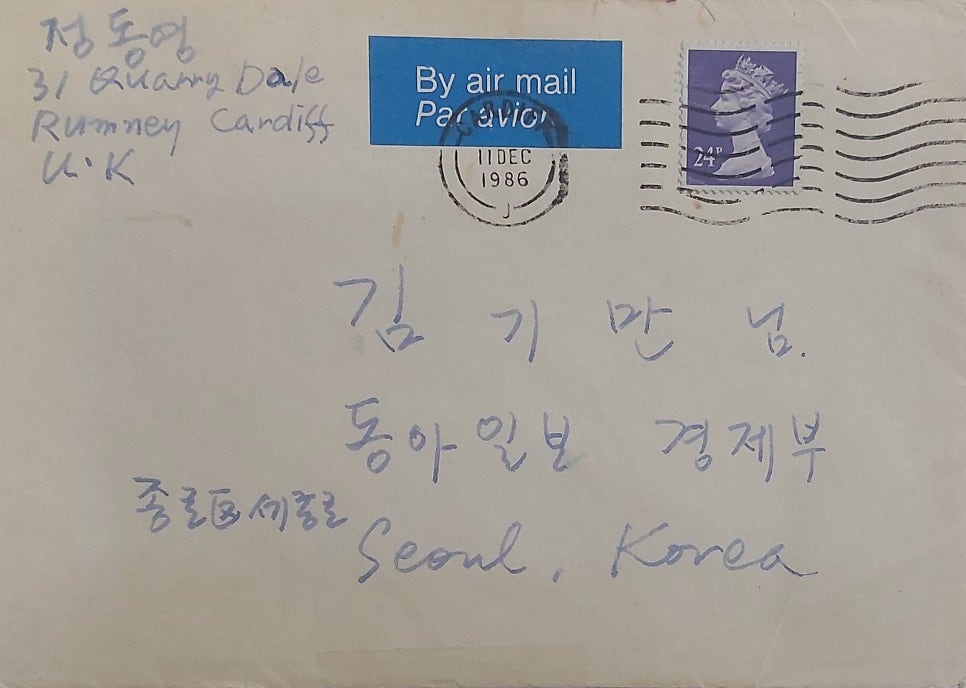 정동영
31 Quarry Dale
Rumney Cardiff
U.K
By air mail
Par avion
CARDIFF
11 DEC
1986
J
24P
김 기 만 님.
동아일보 경제부
종로区 세종로
Seoul, Korea